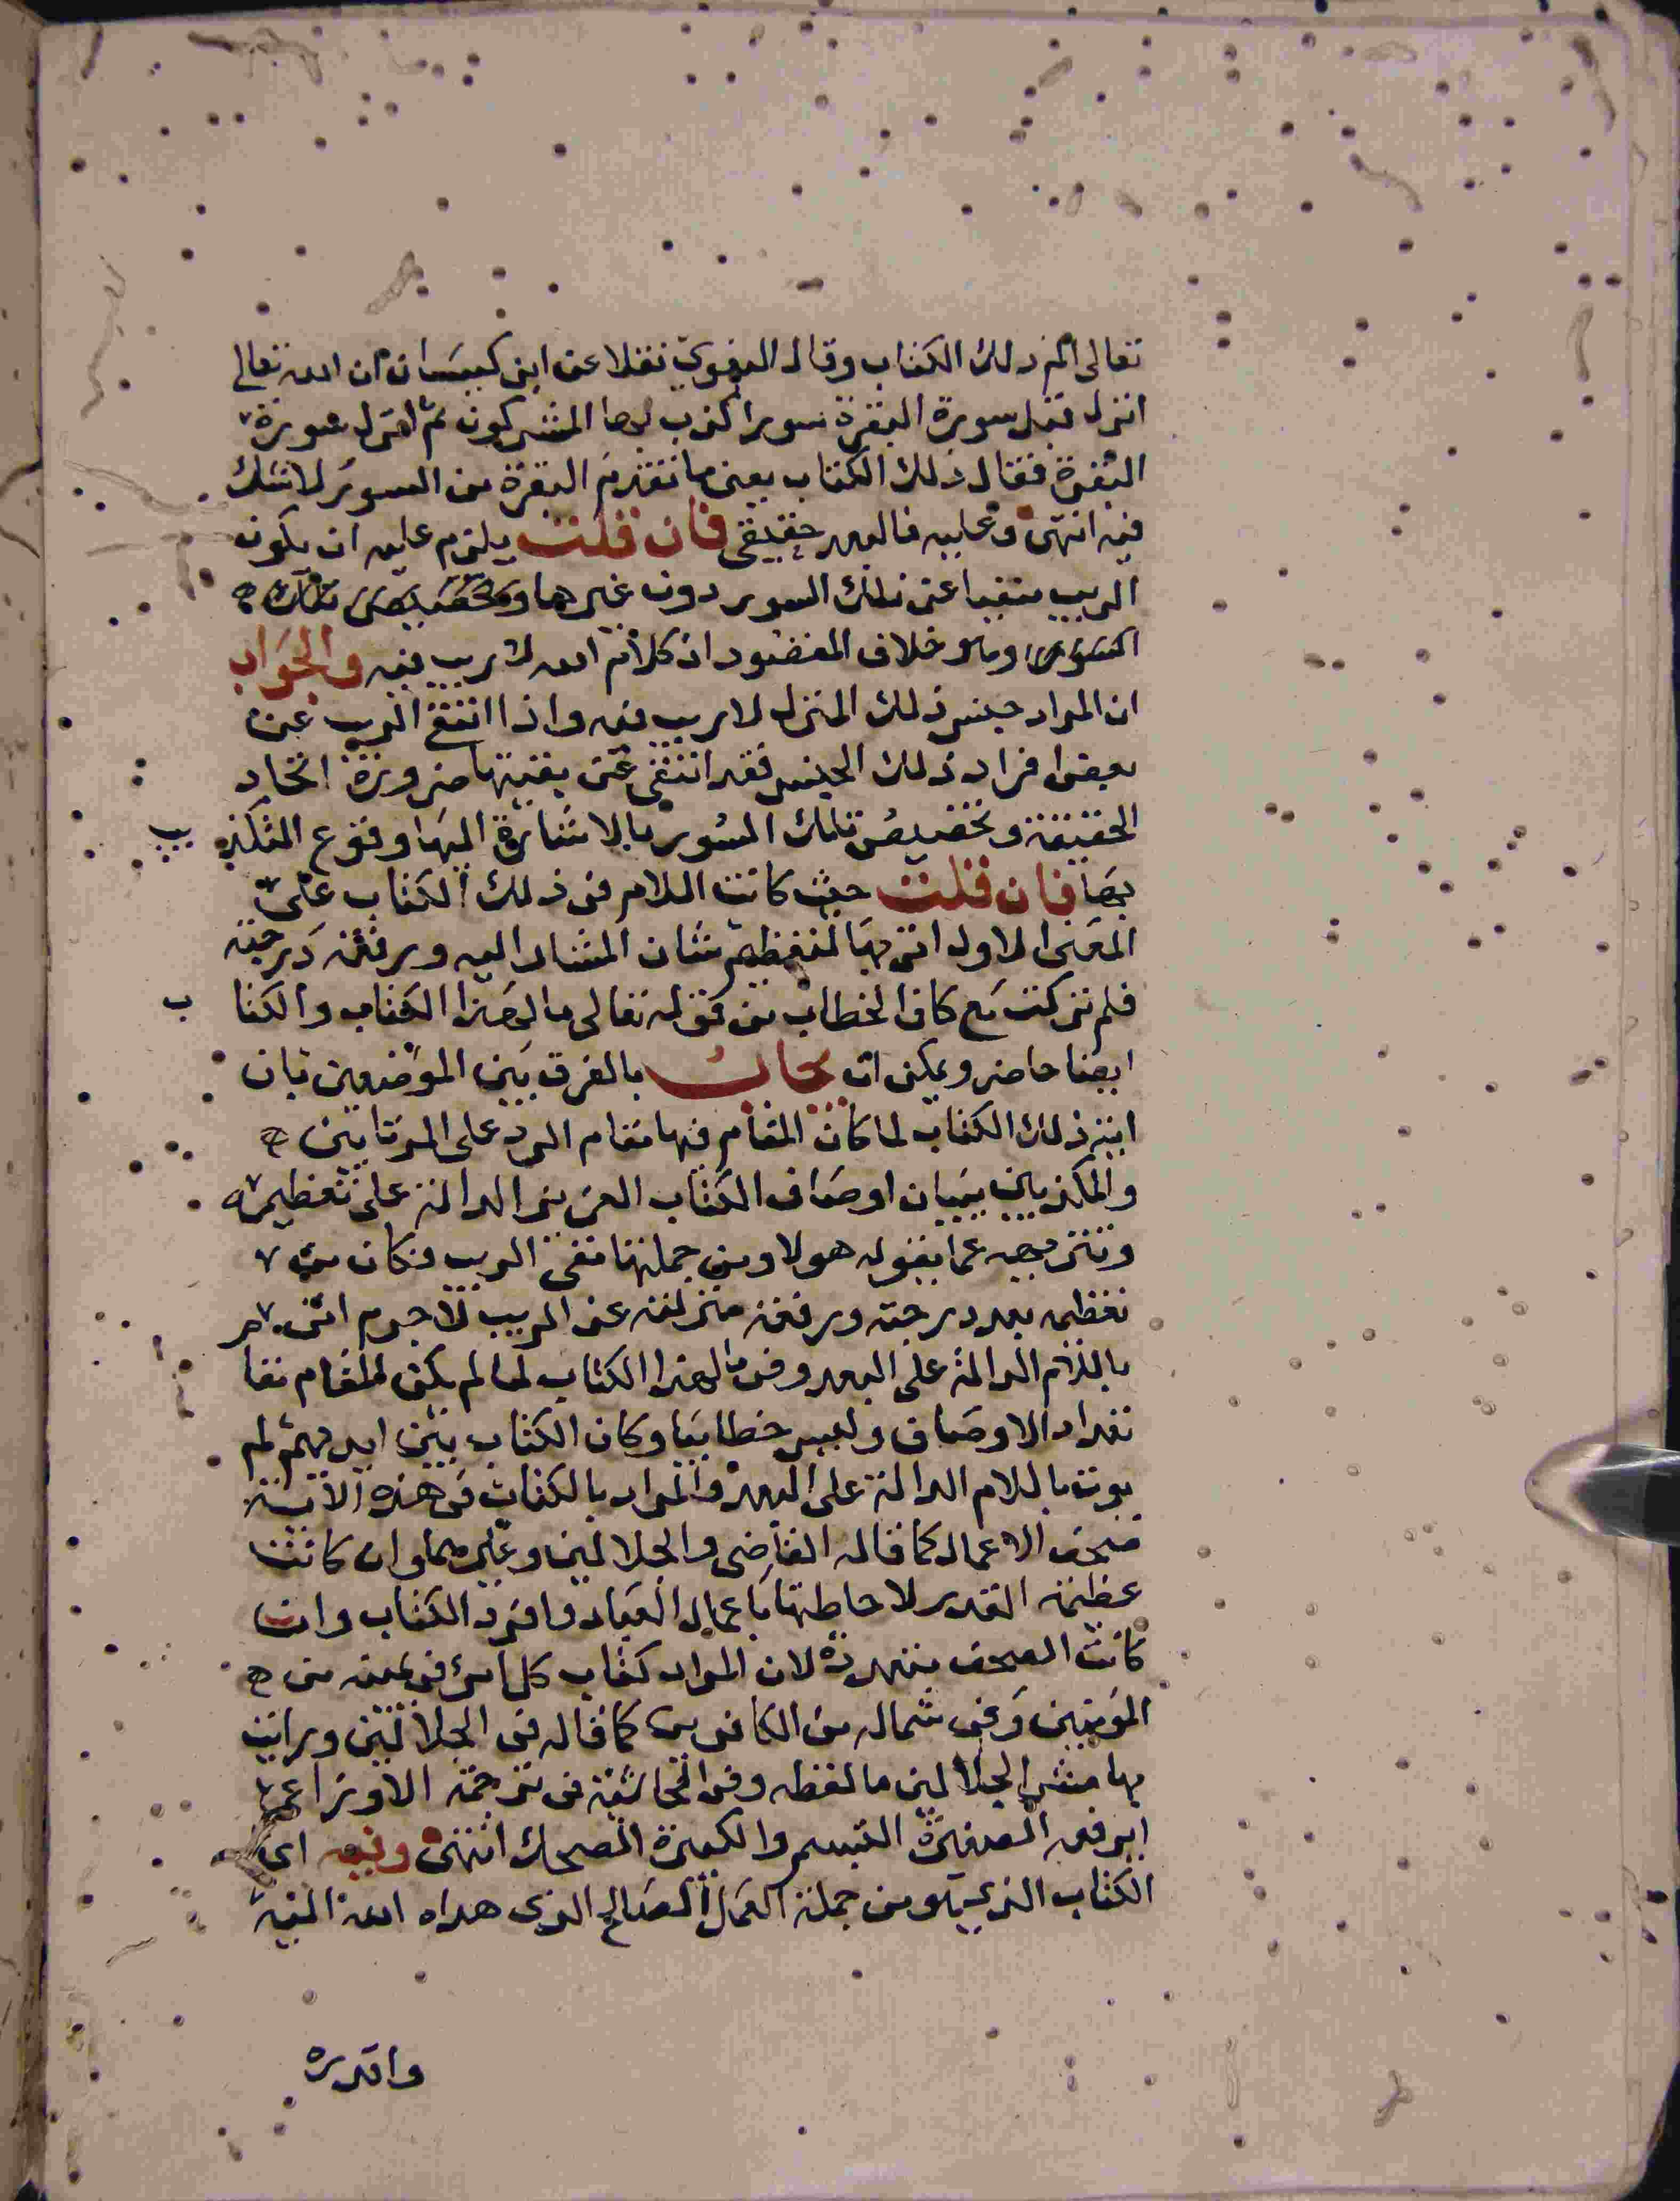 تعالى الم ذلك الكتاب وقال البغوي نقلا عن ابن كيسان ان الله تعالى
انزل قبل سورة البقرة سورا كذب بها المشركون ثم انزل سورة
البقرة فقال ذلك الكتاب يعنى ما تقدم البقرة من السور لا شك
فيه انتهى وعليه فالبعد حقيقى فان قلت يلزم عليه ان يكون
الريب منفيا عن تلك السور دون غيرها وتخصيص تلك
السور وهو خلاف المقصود اذ كلام الله لا ريب فيه والجواب
ان المراد جنس ذلك المنزل لا ريب فيه واذا انتفى الريب عن
بعض افراد ذلك الجنس فقد انتفى عن بقيتها ضرورة اتحاد
الحقيقة وتخصيص تلك السور بالاشارة اليها وقوع التكذيب
بها فان قلت حيث كانت اللام فى ذلك الكتاب على
المعنى الاول اتى بها لتعظيم شان المشار اليه ورفعة درجته
فلم تركت مع كاف الخطاب من قوله تعالى مال هذا الكتاب والكتاب
ايضا حاضر ويمكن ان يجاب بالفرق بين الموضعين بان
اية ذلك الكتاب لما كان المقام فيها مقام الرد على المرتابين
والمكذبين ببيان اوصاف الكتاب العزيز الدالة على تعظيمه
وتنزيهه عما يقوله هولا ومن جملتها نفى الريب فكان من
تعظيمه بعد درجته ورفعة منزلته عن الريب لا جرم اتى
باللام الدالة على البعد وفى مال هذا الكتاب لما لم يكن المقام مقا
تعداد الاوصاف وليس خطابيا وكان الكتاب بين ايديهم لم
يوت باللام الدالة على البعد والمراد بالكتاب فى هذه الاية
صحف الاعمال كما قاله القاضى والجلالين وغيرهما وان كانت
عظيمة القدر لاحاطتها باعمال العباد وافرد الكتاب وان
كانت الصحف متعددة لان المراد كتاب كل امرئ فى يمينه من
المؤمنين وفى شماله من الكافرين كما قاله فى الجلالين ورايت
بهامش الجلالين ما لفظه وفى الحاشية فى ترجمة الاوزاعى
الصغيرة التبسم والكبيرة الضحك انتهى وفيه اى
الكتاب الذى هو من جملة العمل الصالح الذى هداه الله اليه
واقدره